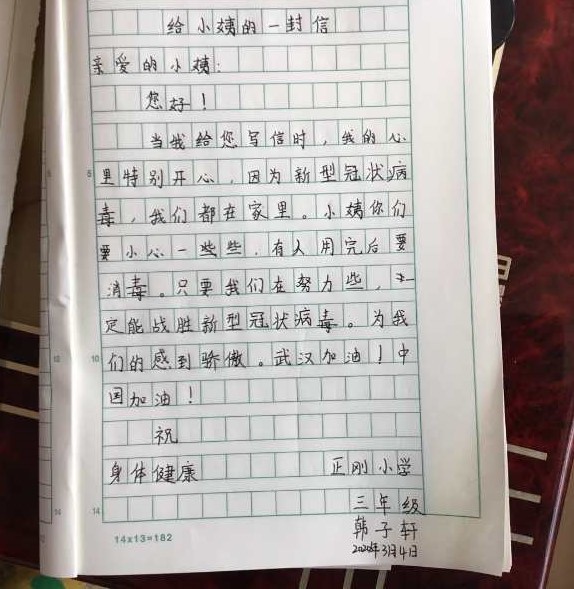 给小姨的一封信
亲爱的小姨：
您好！
当我给您写信时，我的心
里特别开心，因为新型冠状病
毒，我们都在家里。小姨你们
要小心一些些，有人用完后要
消毒。只要我们在努力些，一
定能战胜新型冠状病毒。为我
们的感到骄傲。武汉加油！中
国加油！
祝
身体健康 正刚小学
三年级
韩子轩
2020年3月4日
5
10
14
14
14×13=182